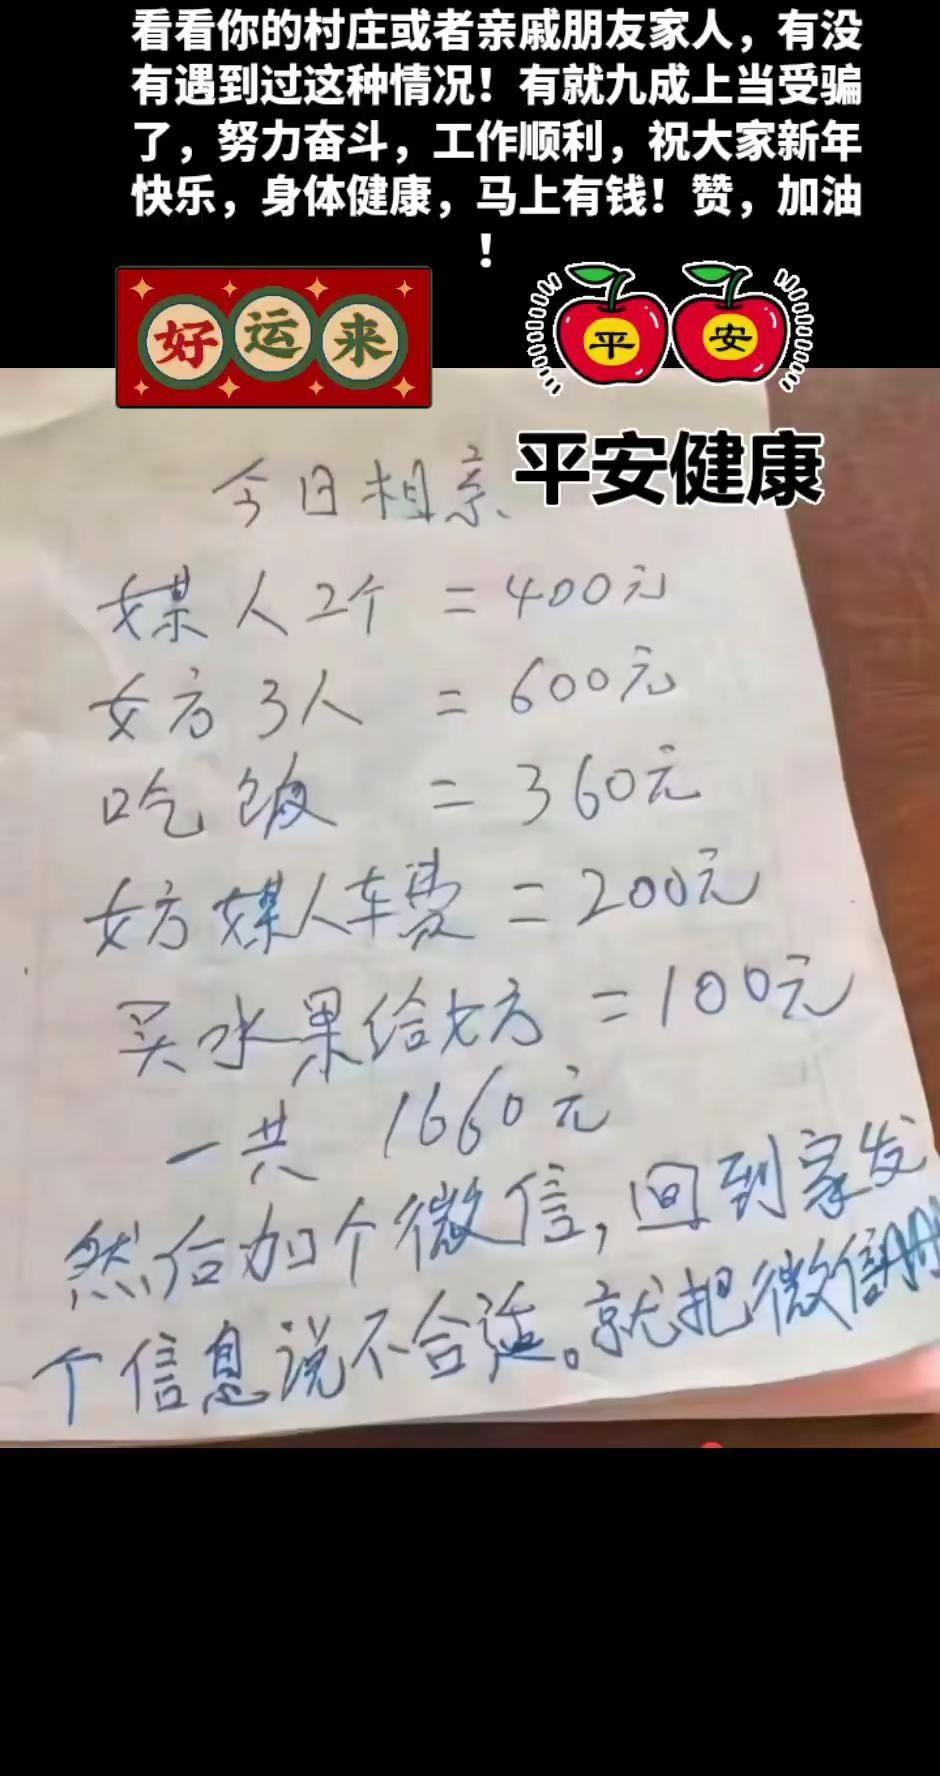 看看你的村庄或者亲戚朋友家人，有没
有遇到过这种情况！有就九成上当受骗
了，努力奋斗，工作顺利，祝大家新年
快乐，身体健康，马上有钱！赞，加油
！
好运来
平安
平安健康
今日相亲
媒人2个 = 400元
女方3人 = 600元
吃饭 = 360元
女方媒人车费 = 200元
买水果给女方 = 100元
一共 1660元
然后加个微信，回到家发
个信息说不合适。就把微信删